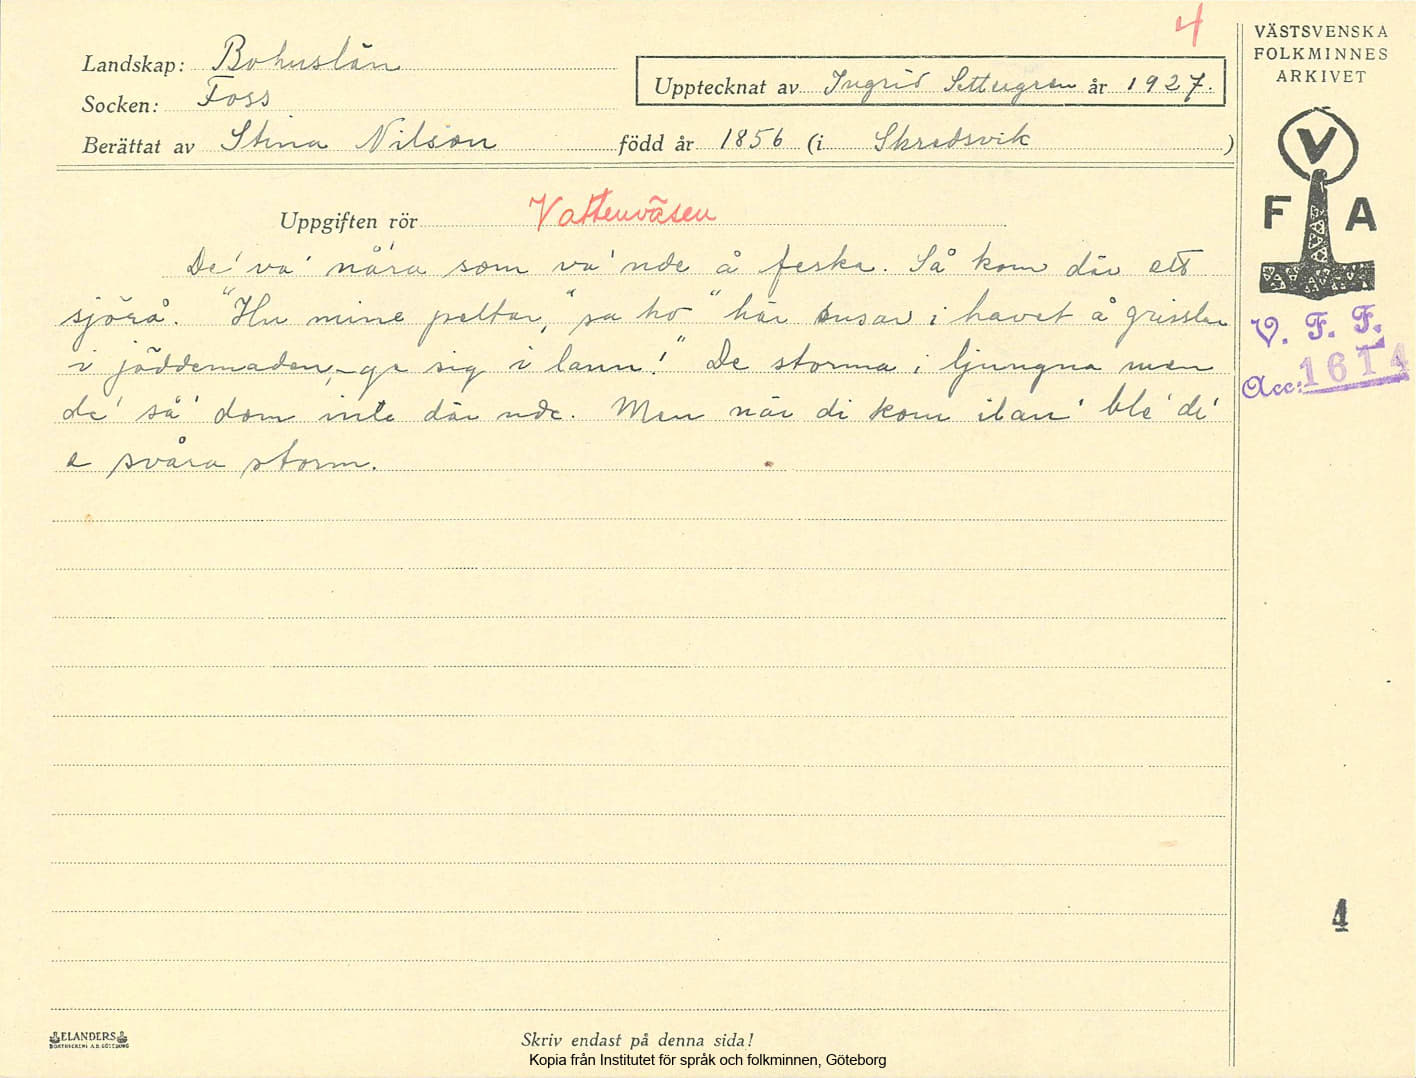 4
Landskap: Bohuslän
Socken: Foss
Upptecknat av Ingrid Settergren år 1927.
Berättat av Stina Nilson född år 1856 (i Skredsvik )
Uppgiften rör Vattenväsen
De' va' nåra som va' nde å feska. Så kom där ett
sjörå. "Hu mine peltar," sa ho "här susar i havet å grisslar
i jöddemaden, – ge sig i lann!" De storma i ljungna men
de' så' dom inte där nde. Men när di kom ilan' ble' de'
e svåra storm.
VÄSTSVENSKA
FOLKMINNES
ARKIVET
V
F A
V. F. F.
Acc: 1614
4
ELANDERS
BOKTRYCKERI A.B. GÖTEBORG
Skriv endast på denna sida!
Kopia från Institutet för språk och folkminnen, Göteborg